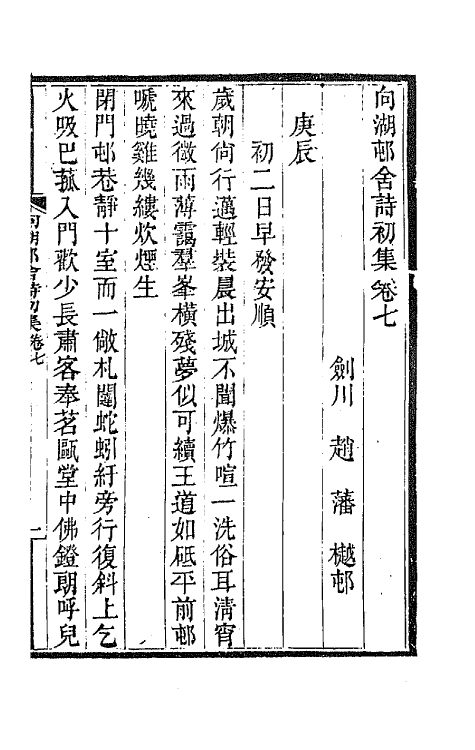 向湖邨舍詩初集卷七
劍川 趙 藩 樾邨
庚辰
初二日早發安順
歲朝尙行邁輕裝晨出城不聞爆竹喧一洗俗耳淸宵
來過微雨薄靄羣峯橫殘夢似可續王道如砥平前邨
唬曉雞幾縷炊煙生
閉門邨巷靜十室而一敞札闥蛇蚓紆旁行復斜上乞
火吸巴菰入門歡少長肅客奉茗甌堂中佛鐙朗呼兒
向湖邨舍詩初集卷七
一